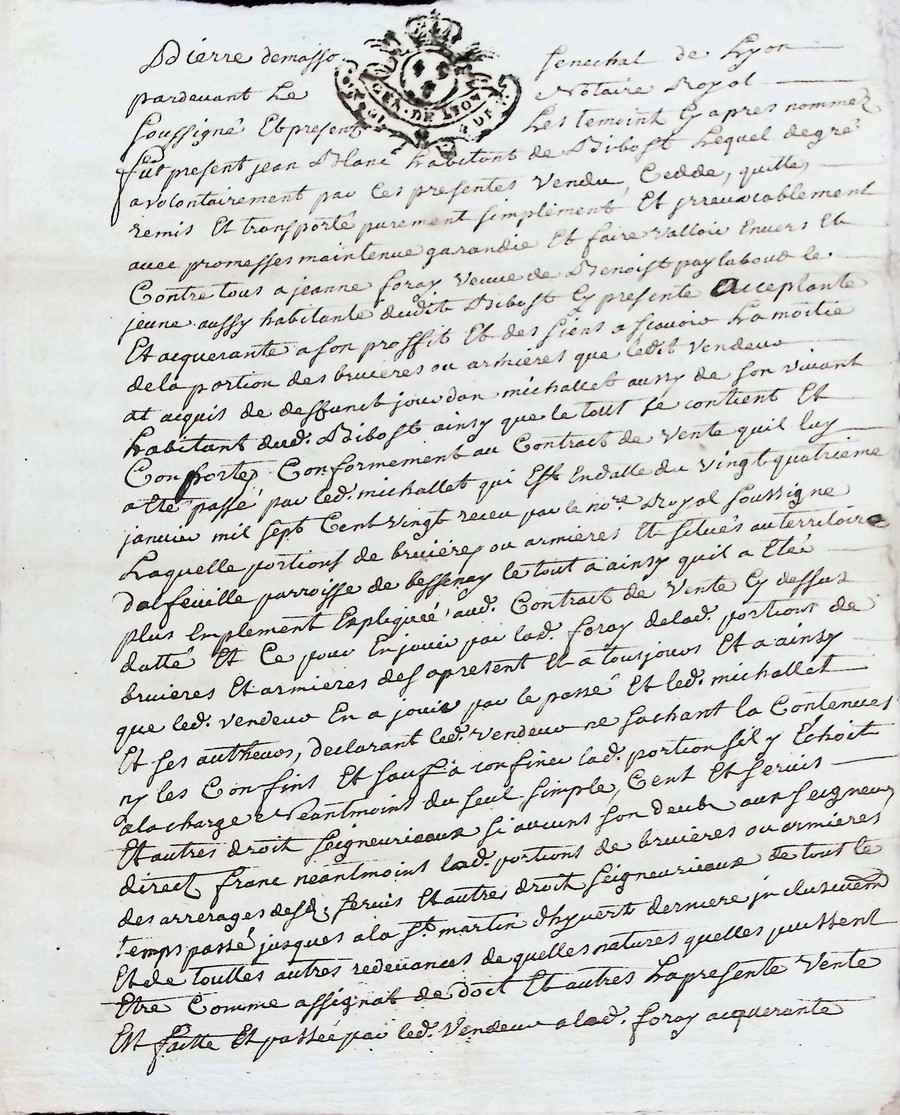 Pierre demasso Senechal de Lyon
pardevant Le Notaire Royal
Soussigné Et present Les temoint Cy apres nommez
GEN. DE LYON
fut present jean Blanc habitant de Bibost Lequel de gré
a volontairement par Ces presentes Vendu, Cedde, quitte,
remis Et transporté purement simplement Et jrreuocablement
auec promesses maintenue garandie Et faire valloir Enuers Et
Contre tous a jeanne foray Veuue de Benoist pay laboud le
jeune aussy habitante dudit Bibost Cy presente Acceptante
Et acquerante a son proffit Et des siens a scauoir La moitie
de la portion des bruieres ou armieres que ledit Vendeur
at acquis de deffunct jourdan michallet aussy de son viuant
habitant dud. Bibost ainsy que le tout se contient Et
Comporte, Conformement au Contract de Vente quil luy
a été passé par led. michallet qui Est En datte du Vingt quatrieme
januier mil sept Cent Vingt receu par le nore. Royal Soussigne
Laquelle portions de bruieres ou armieres Et situés au territoire
dalfeuille parroisse de bessenay le tout a ainsy quil a Eté
plus Emplement Expliqueé aud. Contract de Vente Cy dessus
datté Et Ce pour En jouir par lad. foray de lad. portions de
bruieres Et armieres des apresent Et a tousjours Et a ainsy
que led. Vendeur En a jouir par le passé Et led. michallet
Et ses autheurs, declarant led. Vendeur ne sachant la Contenues
ny les Confins Et sauf à confiner lad. portion sil y Echoit
a la charge Neantmoins du seul simple, Cent Et seruis
Et autres droit Seigneurieaux si aucuns son deub aux Seigneur
direct franc neantmoins lad. portions de bruieres ou armieres
des arrerages desd. seruis Et autres droit Seigneurieaux de tout le
temps passé jusques a la St. martin d'hyuert derniere jnclusiuem
Et de touttes autres redeuances de quelles natures quelles puissent
Etre Comme assignat de doit Et autres La presente Vente
Est faitte Et passée par led. Vendeur a lad. foray acquerante